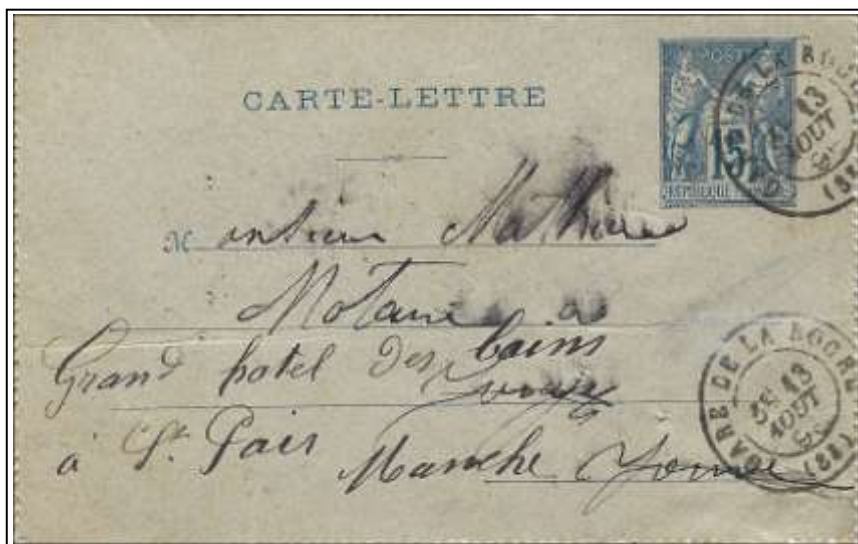 CARTE-LETTRE
POSTES
15
RÉPUBLIQUE
GARE DE LA BOURS
13
AOUT
Monsieur Mathieu
Notaire à
Grand hotel des bains
à St. Pair Manche Yonne
GARE DE LA BOURS
13
AOUT